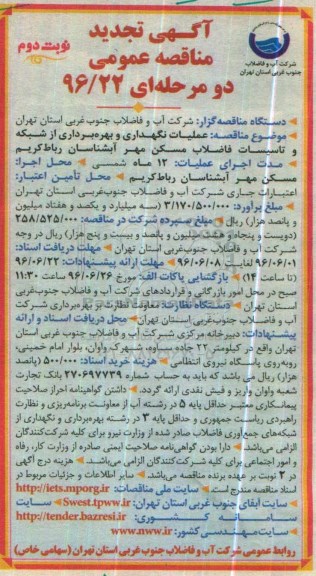 آگهی تجدید
مناقصه عمومی
دو مرحله‌ای ۹۶/۲۲
نوبت دوم
شرکت آب و فاضلاب
جنوب غربی استان تهران
دستگاه مناقصه‌گزار: شرکت آب و فاضلاب جنوب غربی استان تهران
موضوع مناقصه: عملیات نگهداری و بهره‌برداری از شبکه
و تاسیسات فاضلاب مسکن مهر آبشناسان رباط‌کریم
مدت اجرای عملیات: ۱۲ ماه شمسی محل اجرا:
مسکن مهر آبشناسان رباط‌کریم محل تأمین اعتبار:
اعتبارات جاری شرکت آب و فاضلاب جنوب‌غربی استان تهران
مبلغ برآورد: ۳/۱۷۰/۵۰۰/۰۰۰ (سه میلیارد و یکصد و هفتاد میلیون
و پانصد هزار) ریال مبلغ سپرده شرکت در مناقصه: ۲۵۸/۵۲۵/۰۰۰
(دویست و پنجاه و هشت میلیون و پانصد و بیست و پنج هزار) ریال در وجه
شرکت آب و فاضلاب جنوب‌غربی استان تهران مهلت دریافت اسناد:
۹۶/۰۶/۰۱ لغایت ۹۶/۰۶/۰۸ مهلت ارائه پیشنهادات: ۹۶/۰۶/۲۲
(تا ساعت ۱۴) بازگشایی پاکات الف: مورخ ۹۶/۰۶/۲۶ ساعت ۱۱:۳۰
صبح در محل امور بازرگانی و قراردادهای شرکت آب و فاضلاب جنوب‌غربی
استان تهران دستگاه نظارت: معاونت نظارت بر بهره‌برداری شرکت
آب و فاضلاب جنوب‌غربی استان تهران محل دریافت اسناد و ارائه
پیشنهادات: دبیرخانه مرکزی شرکت آب و فاضلاب جنوب غربی استان
تهران واقع در کیلومتر ۲۲ جاده ساوه، شهرک واوان، بلوار امام خمینی،
روبه‌روی پاسگاه نیروی انتظامی هزینه خرید اسناد: ۵۰۰/۰۰۰ (پانصد
هزار) ریال می باشد که باید به حساب شماره ۲۷۰۶۹۷۷۳۹ بانک تجارت
شعبه واوان واریز و فیش نقدی ارائه گردد. داشتن گواهینامه احراز صلاحیت
پیمانکاری معتبر حداقل پایه ۵ در رشته آب از معاونت برنامه‌ریزی و نظارت
راهبردی ریاست جمهوری و حداقل پایه ۳ در رشته بهره‌برداری و نگهداری از
شبکه‌های جمع‌آوری فاضلاب صادر شده از وزارت نیرو برای کلیه شرکت‌کنندگان
الزامی می‌باشد دارا بودن گواهی‌نامه صلاحیت ایمنی صادره از وزارت کار، رفاه
و امور اجتماعی برای کلیه شرکت‌کنندگان الزامی می‌باشد. هزینه درج آگهی
در ۲ نوبت بر عهده برنده مناقصه می‌باشد سایر اطلاعات و جزئیات مربوط در
اسناد مناقصه مندرج است. سایت ملی مناقصات: http://iets.mporg.ir
سایت آبفای جنوب غربی استان تهران: Swest.tpww.ir سایت
http://tender.bazresi.ir
سایت مهندسی کشور: www.nww.ir
روابط عمومی شرکت آب و فاضلاب جنوب غربی استان تهران (سهامی خاص)